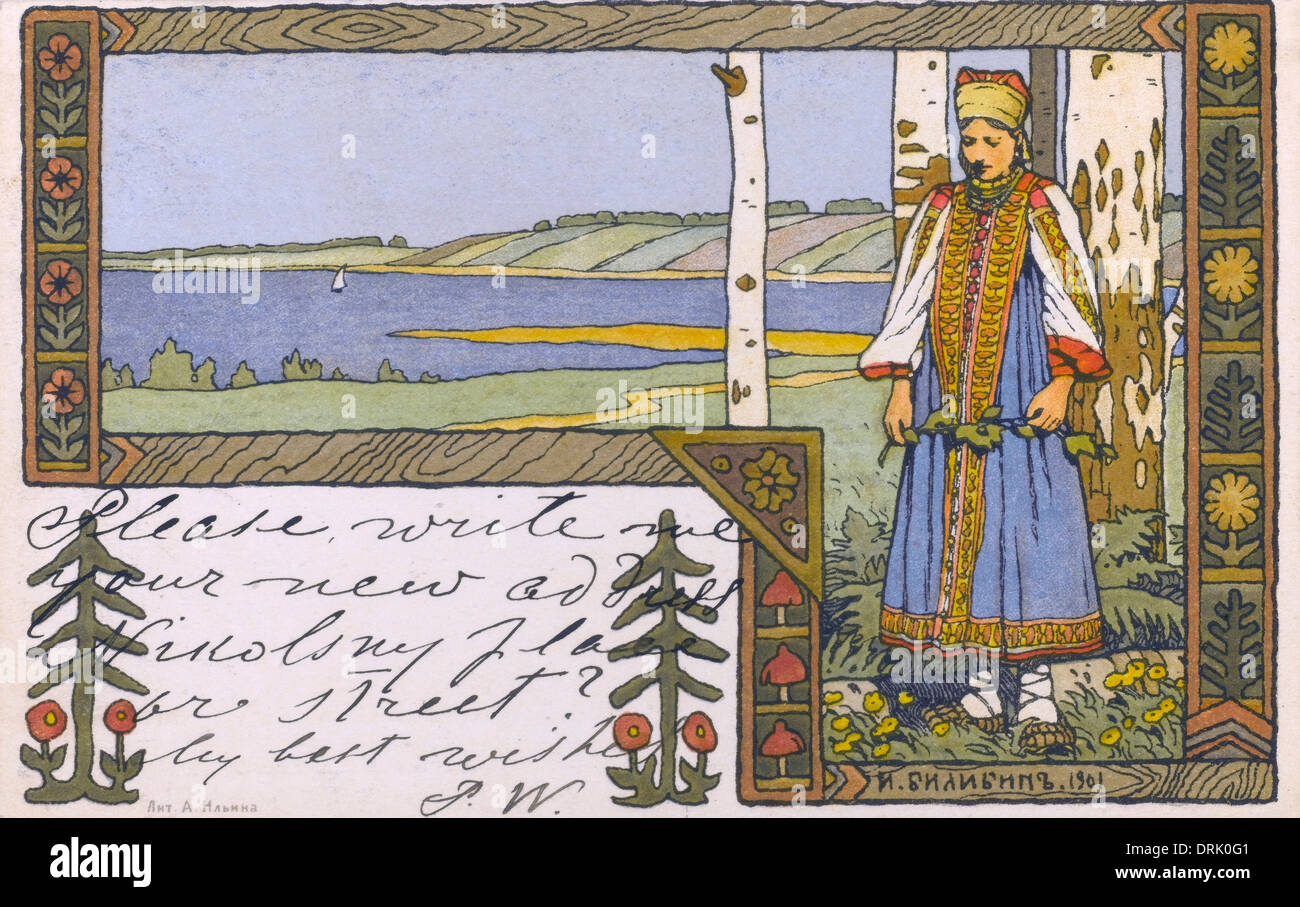 Please, write me
your new address
Nikolsny place
or street?
My best wishes
P. W.
Лит. А. Ильина
И. БИЛИБИНЪ. 1901
alamy
alamy
a
a
a
a
alamy
Image ID: DRK0G1
www.alamy.com